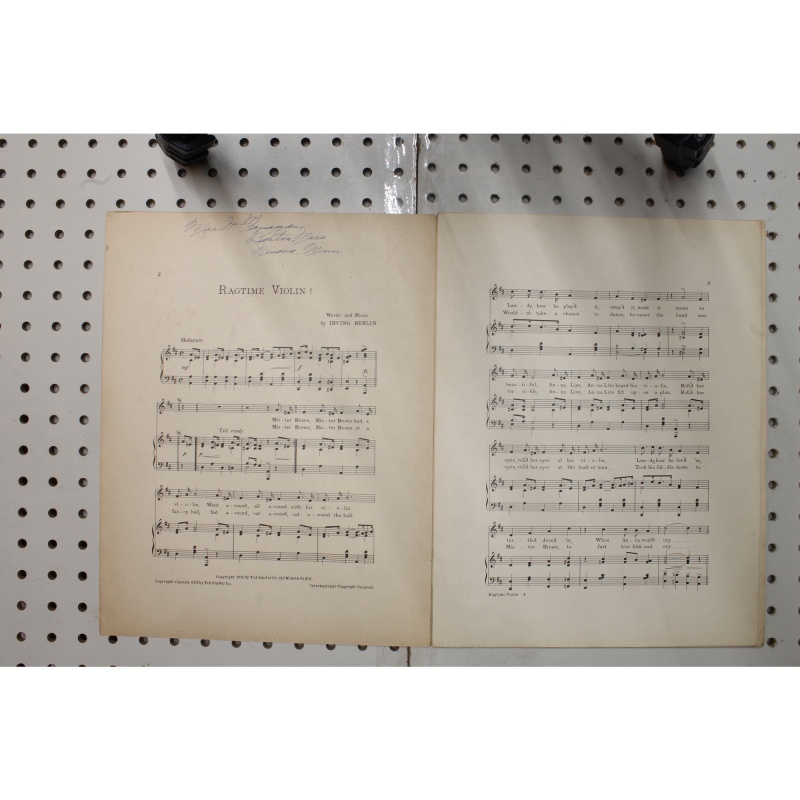 2
RAGTIME VIOLIN!
Words and Music
by IRVING BERLIN
Moderato
mf
f
Mis-ter Brown, Mis-ter Brown had a
Mis-ter Brown, Mis-ter Brown at a
Till ready
p
vi-o-lin, Went a-round, all a-round with his vi-o-lin,
fan-cy ball, Sat a-round, sat a-round, sat a-round the hall
Copyright 1911 by Ted Snyder Co.
Copyright Canada 1911 by Ted Snyder Co.
International Copyright Secured
3
Law-dy, how he play'd it, sway'd it, made it moan so
Would-n't take a chance to dance, be-cause the band was
beau-ti-ful, An-na Lize, An-na Lize heard his vi-o-lin, Roll'd her
ter-ri-ble, An-na Lize, An-na Lize hit up-on a plan, Roll'd her
eyes, roll'd her eyes at his vi-o-lin, Law-dy, how he lov'd 'er,
eyes, roll'd her eyes at the lead-er man, Took his fid-dle down to
tur-tled doved 'er, When An-na would cry.
Mis-ter Brown, to Just kiss him and cry.
Ragtime Violin 4